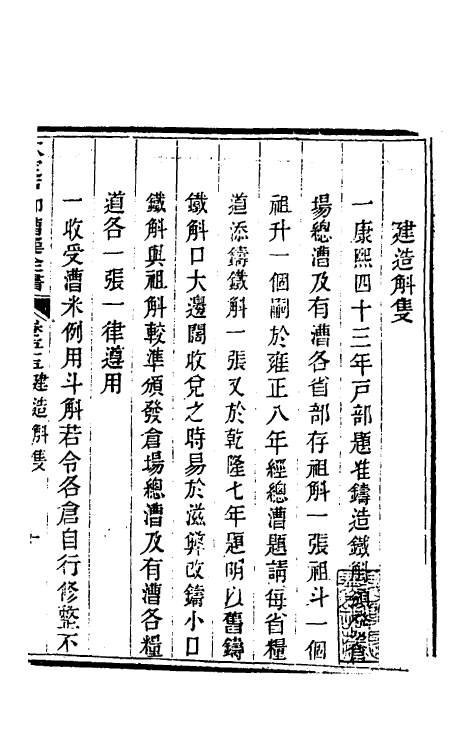 建造斛隻
一康熙四十三年戸部題准鑄造鐵斛頒發倉
場總漕及有漕各省部存祖斛一張祖斗一個
祖升一個嗣於雍正八年經總漕題請每省糧
道添鑄鐵斛一張又於乾隆七年題明以舊鑄
鐵斛口大邊闊收兌之時易於滋弊改鑄小口
鐵斛與祖斛較準頒發倉場總漕及有漕各糧
道各一張一律遵用
一收受漕米例用斗斛若令各倉自行修整不
漕運全書
卷五十五建造斛隻